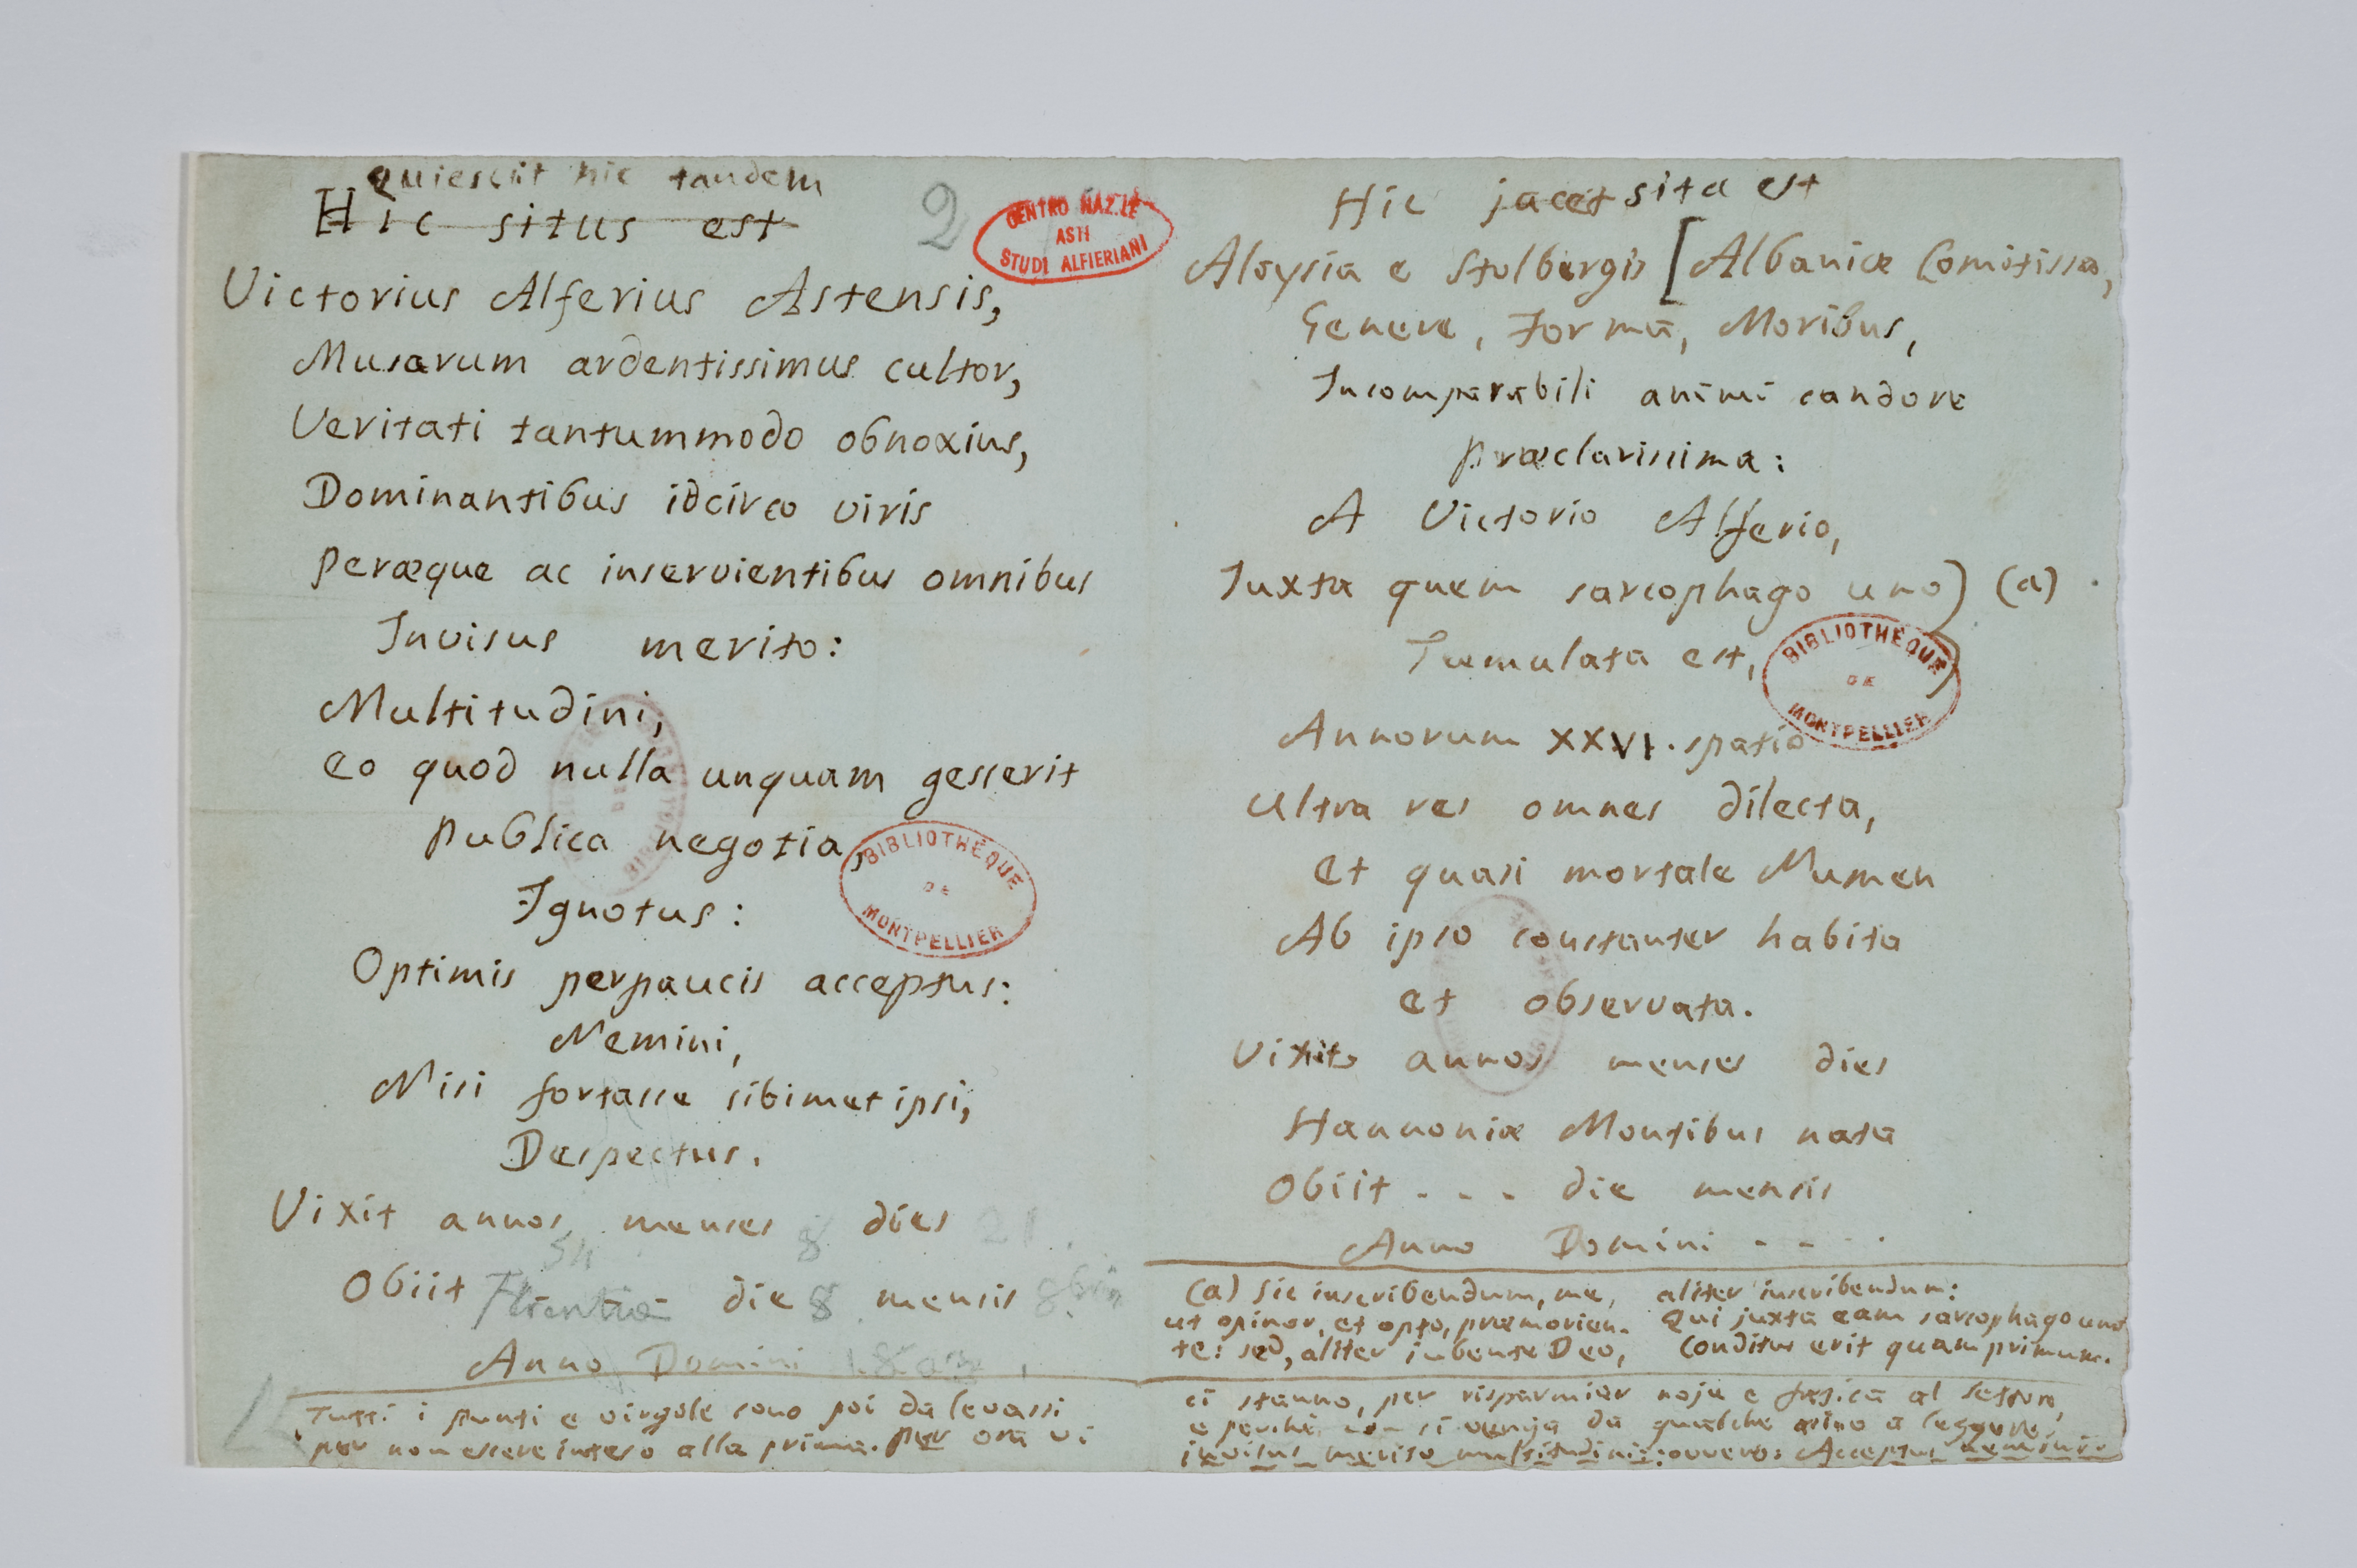 Quiescit hic tandem
Hic situs est
2
CENTRO NAZ.LE
ASTI
STUDI ALFIERIANI
Victorius Alferius Astensis,
Musarum ardentissimus cultor,
Veritati tantummodo obnoxius,
Dominantibus idcirco viris
peræque ac inservientibus omnibus
Invisus merito:
Multitudini,
eo quod nulla unquam gesserit
publica negotia,
Ignotus:
Optimis perpaucis acceptus:
Nemini,
Nisi fortasse sibimet ipsi,
Despectus.
Vixit annos menses 8 dies 21
54
Obiit Florentiæ die 8 mensis 8bris
Anno Domini 1803
BIBLIOTHÉQUE
DE
MONTPELLIER
Tutti i punti e virgole sono poi da levarsi
per non essere inteso alla prima. per ora vi
Hic jacet sita est
Aloysia e Stolbergis [Albaniæ Comitissa,
Genere, Formā, Moribus,
Incomparabili animi candore
præclarissima:
A Victorio Alferio,
Juxta quem sarcophago uno) (a)
Tumulata est,
BIBLIOTHÉQUE
DE
MONTPELLIER
Annorum XXVI. spatio
Ultra res omnes dilecta,
et quasi mortale Numen
Ab ipso constanter habita
et observata.
Vixit annos menses dies
Hannoniæ Montibus nata
Obiit . . . die mensis
Anno Domini - - - -
(a) Sic inscribendum, me, aliter inscribendum:
ut opinor, et opto, præmorien- Qui juxta eam sarcophago uno
te: sed, aliter jubente Deo, Conditus erit quam primum.
ci stanno, per risparmiar noja e fatica al lettore,
e perchè non si venga da qualche asino a leggere,
invisus merito multitudini: ovvero: Acceptus nemini.